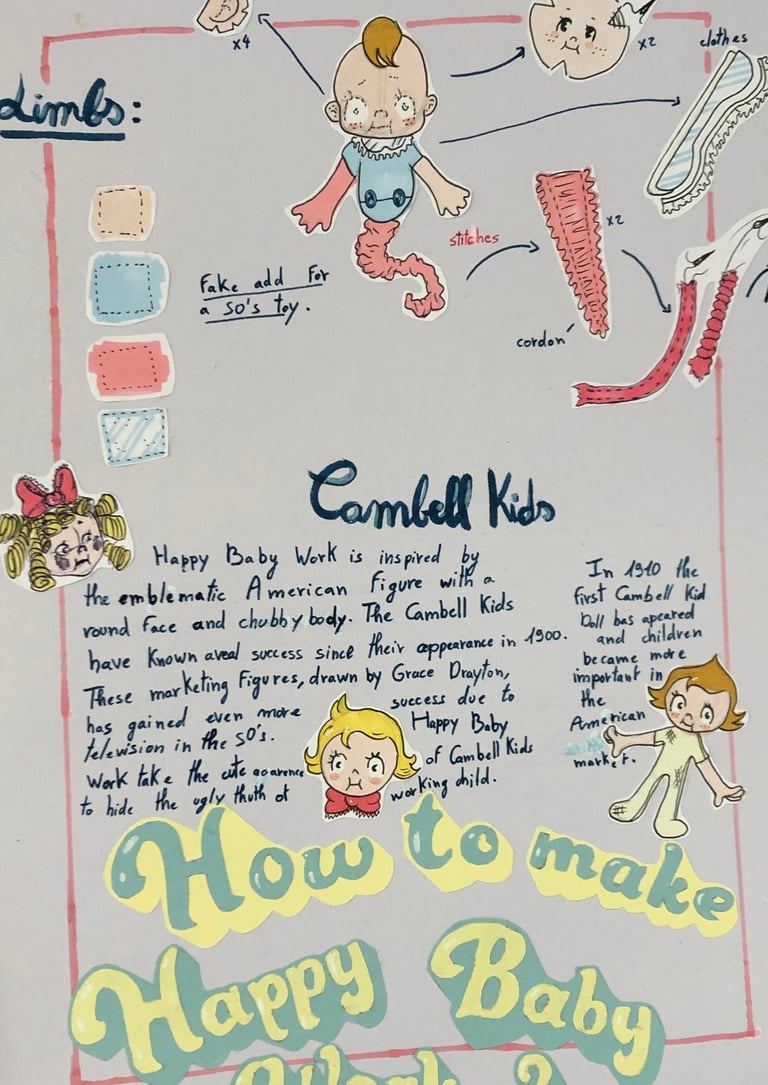 x4
x2
clothes
Limbs:
stitches
x2
Fake add For
a 50's toy.
cordon
Cambell Kids
Happy Baby Work is inspired by
the emblematic American Figure with a
round Face and chubby body. The Cambell Kids
have Known a veal success since their appearance in 1900.
These marKeting Figures, drawn by Grace Drayton,
has gained even more success due to
television in the 50's. Happy Baby
Work take the cute of Cambell Kids
to hide the ugly thuth of working child.
In 1910 the
first Cambell Kid
Doll has apeared
and children
became more
important in
the
American
market.
How to make
Happy Baby
Work ?